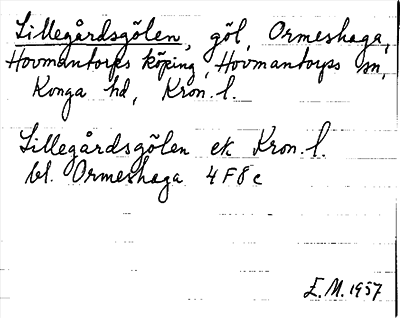 Lillegårdsgölen, göl, Ormeshaga,
Hovmantorps köping, Hovmantorps sn,
Konga hd, Kron. l.
Lillegårdsgölen ek Kron. l.
bl. Ormeshaga 4F8c
E.M. 1957